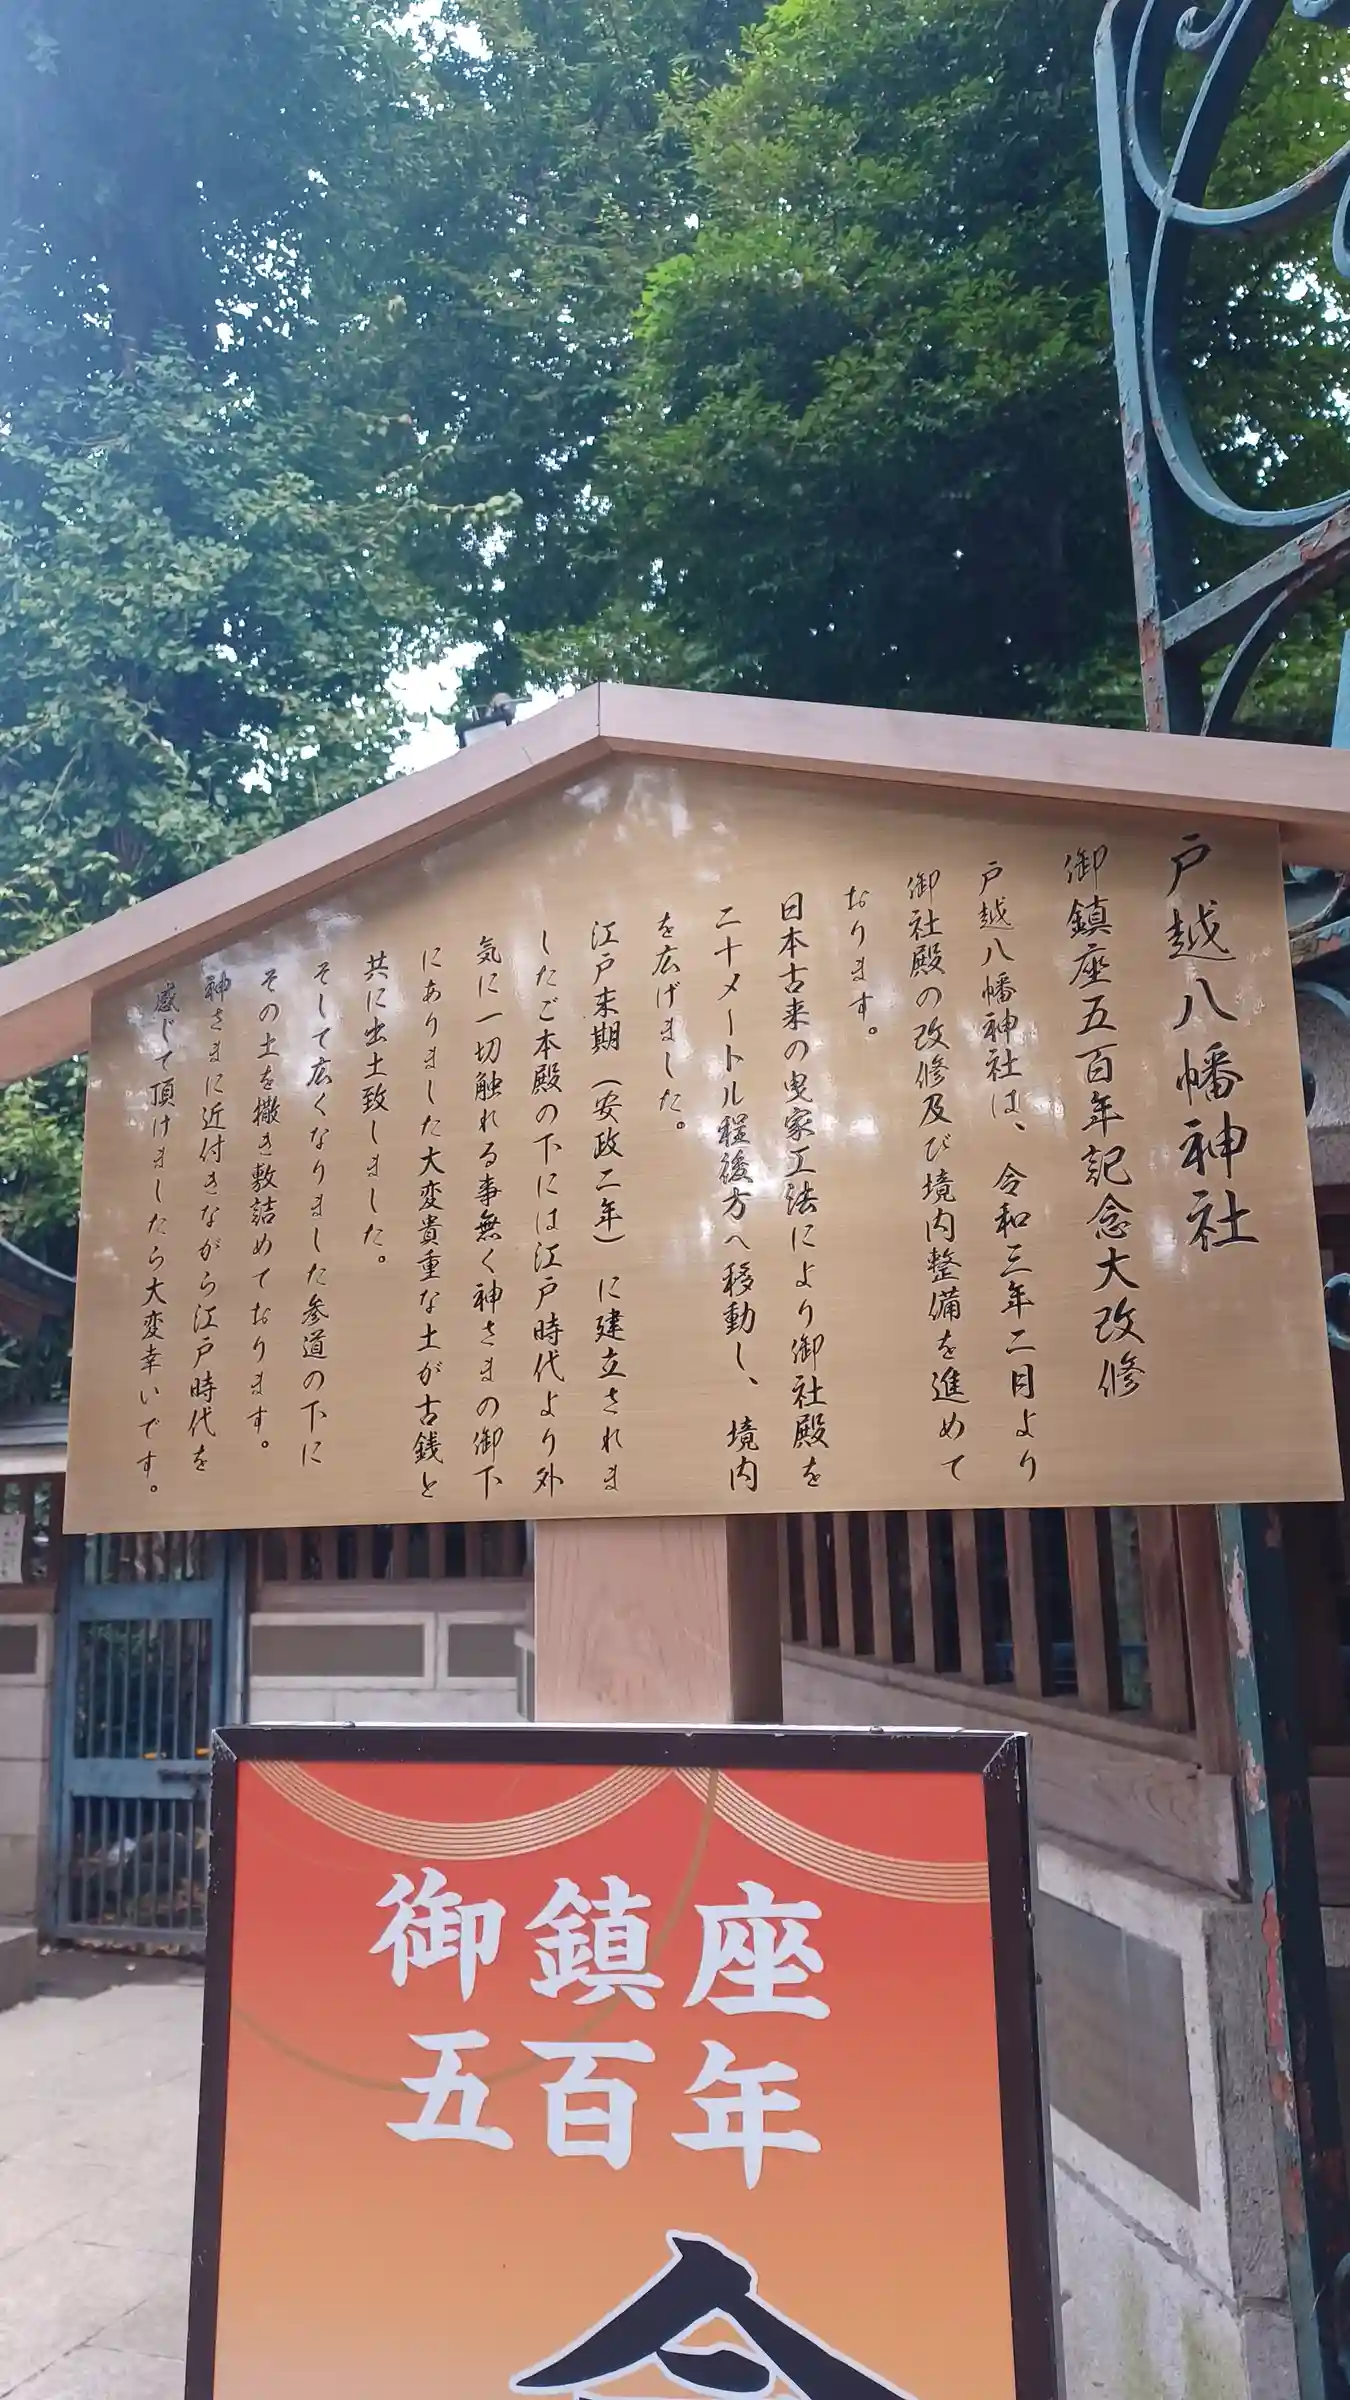 戸越八幡神社
御鎮座五百年記念大改修
戸越八幡神社は、令和三年二月より
御社殿の改修及び境内整備を進めて
おります。
日本古来の曳家工法により御社殿を
二十メートル程後方へ移動し、境内
を広げました。
江戸末期（安政二年）に建立されま
したご本殿の下には江戸時代より外
気に一切触れる事無く神さまの御下
にありました大変貴重な土が古銭と
共に出土致しました。
そして広くなりました参道の下に
その土を撒き敷詰めております。
神さまに近付きながら江戸時代を
感じて頂けましたら大変幸いです。
御鎮座
五百年